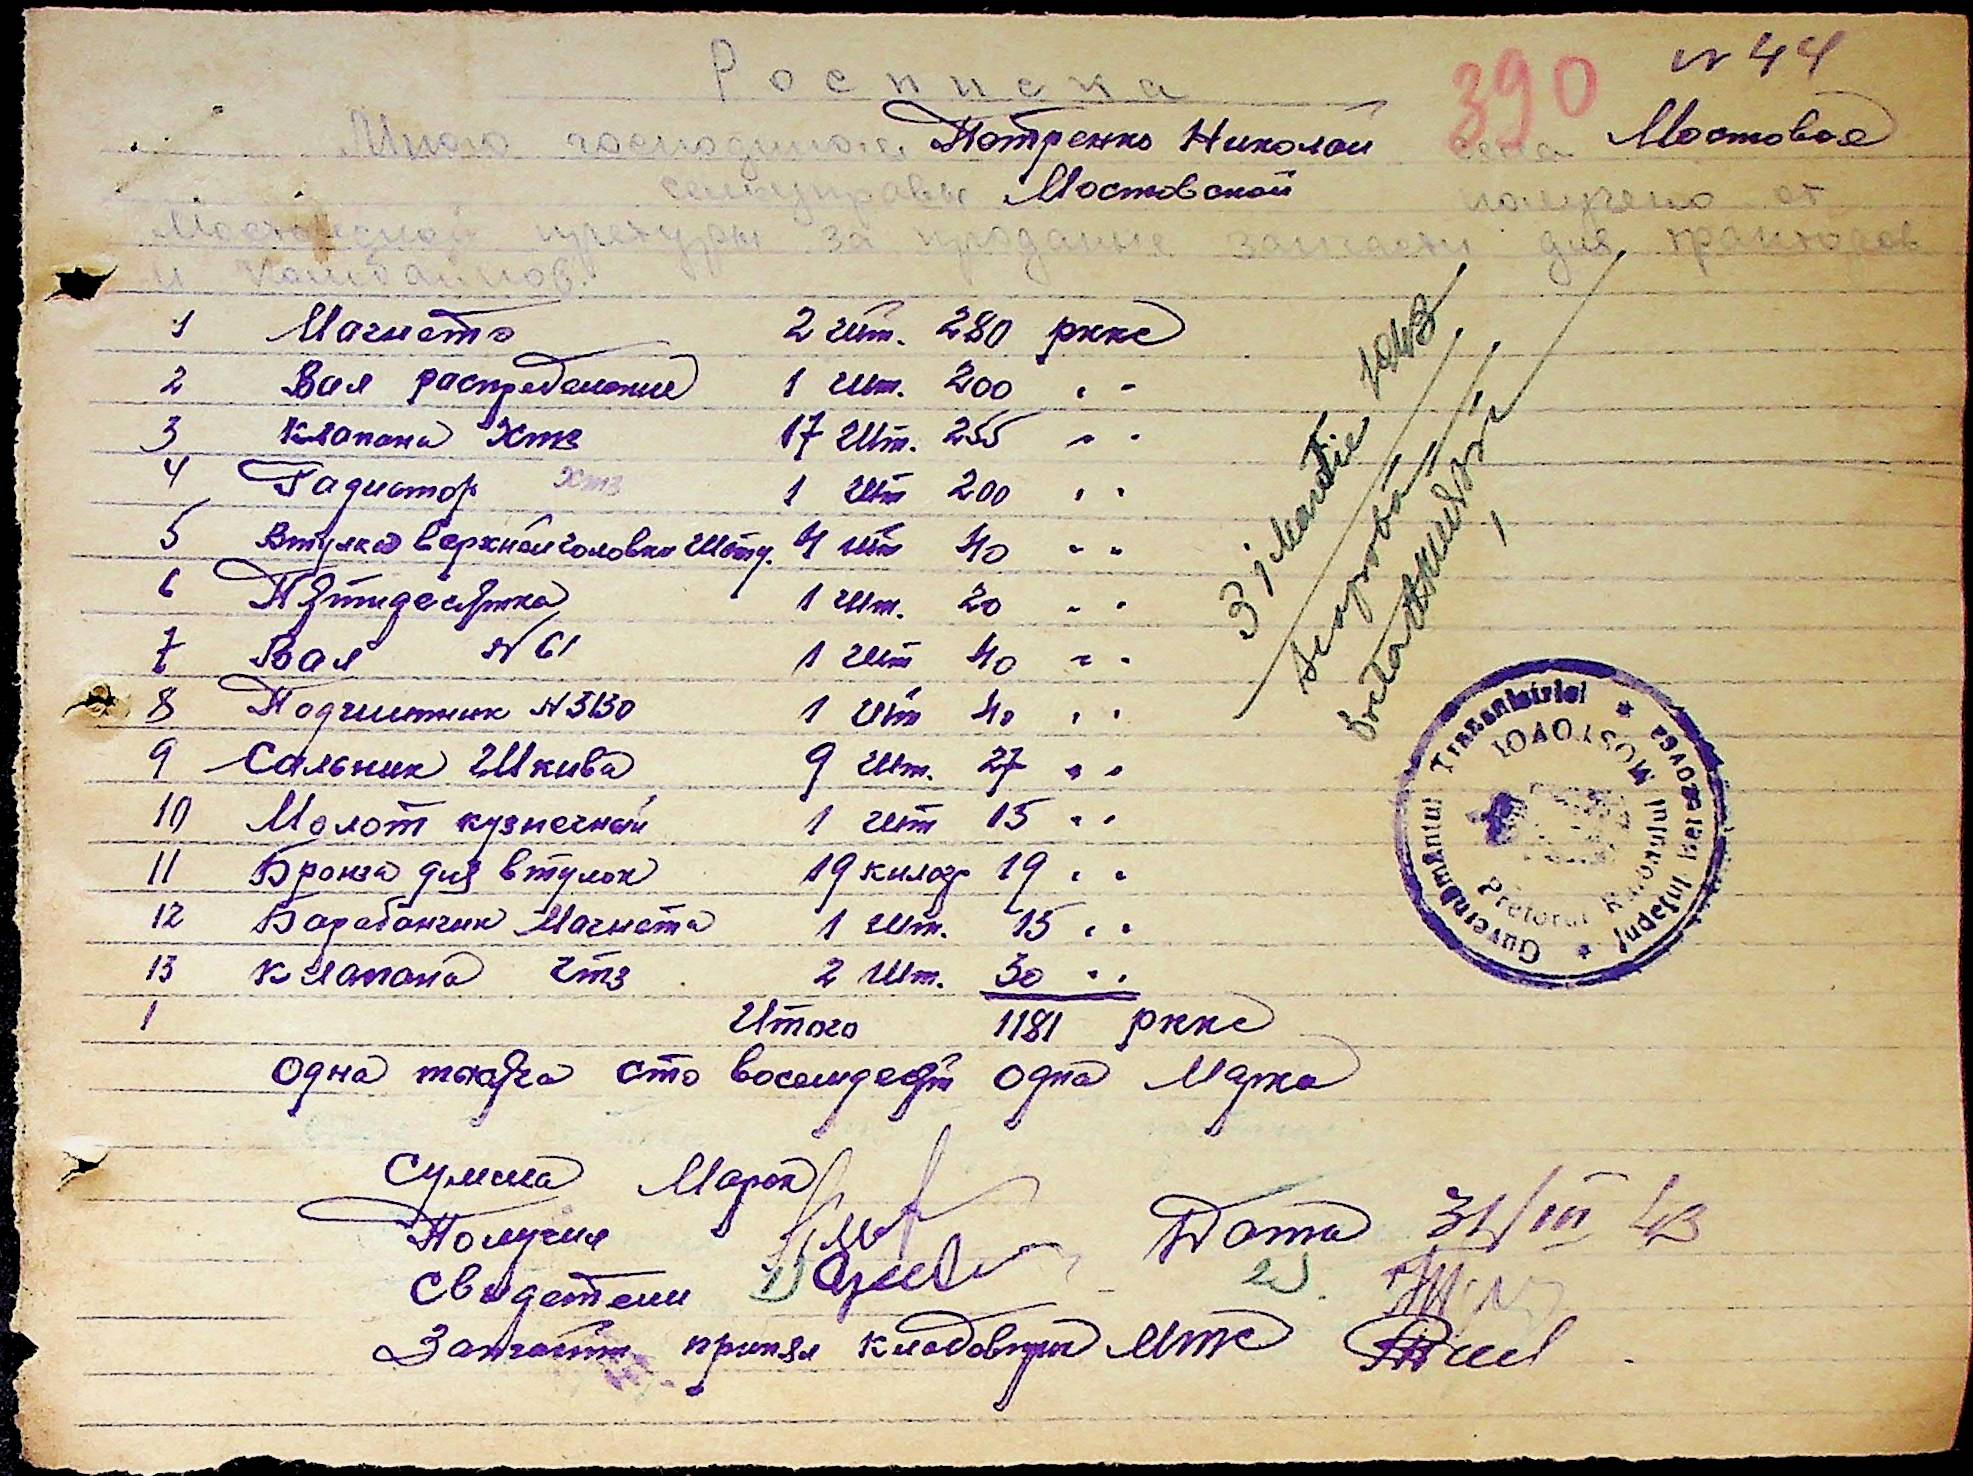 Росписка
390
№ 44
Мною господином Петренко Николай села Мостовое
сельуправы Мостовской получено от
Мостовской претуры за проданые запчасти для тракторов
и комбайнов.
1 Магнето 2 шт. 280 ркке
2 Вал распределение 1 шт. 200 " "
3 Клапана ХТЗ 17 шт. 255 " "
4 Радиатор ХТЗ 1 шт 200 " "
5 Втулка верхней головки шату. 4 шт 40 " "
6 Пятидесятка 1 шт. 20 " "
7 Вал № 61 1 шт 40 " "
8 Подчипник № 3130 1 шт 40 " "
9 Сальник шкива 9 шт. 27 " "
10 Молот кузнечный 1 шт 15 " "
11 Бронза для втулок 19 килогр 19 " "
12 Барабанчик Магнета 1 шт. 15 " "
13 Клапана ЧТЗ 2 шт. 30 " "
1 Итого 1181 ркке
Одна тысяча сто восемдесят одна Марка
31 Martie 1943
Guvernământul Transnistriei * Județul Berezovca *
Pretorul Raionului MOSTOVOI
Сумма Марок
Получил
Дата 31/III 43
Свидетели 1) 2).
Запчасти принял кладовщик МТС